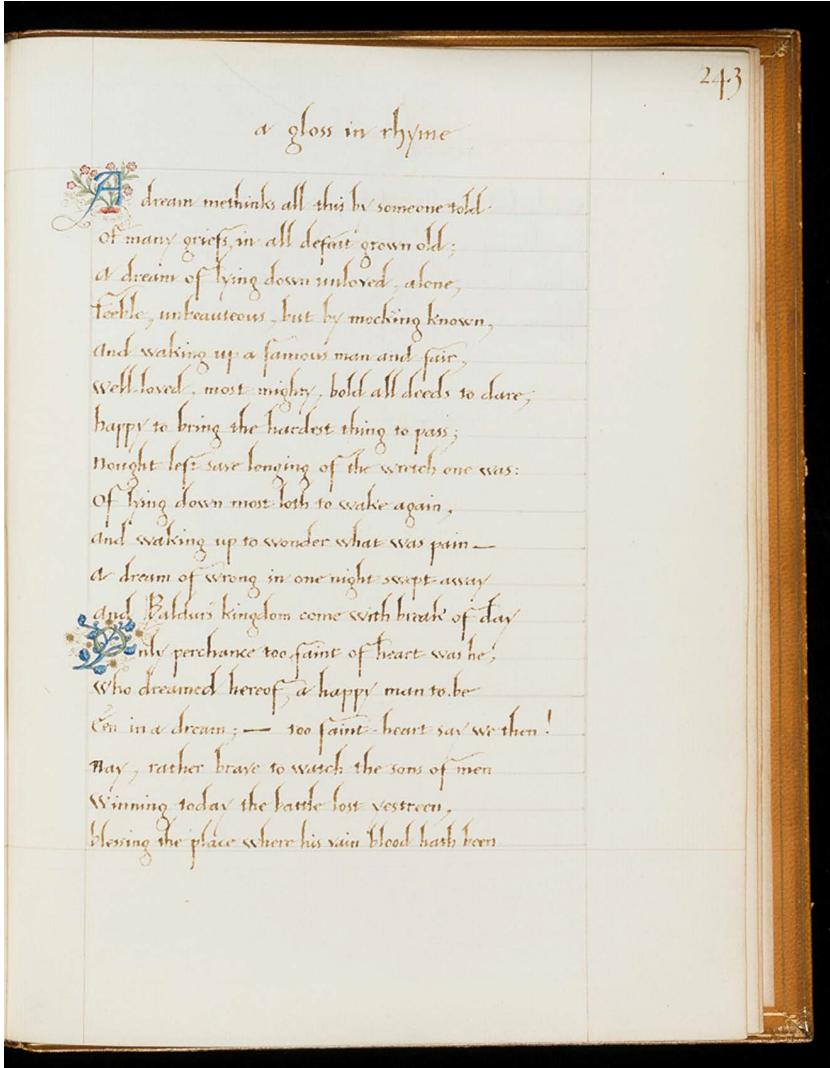 243
a gloss in rhyme
A dream methinks all this by someone told
Of many griefs, in all defeat grown old;
A dream of lying down unloved, alone,
Feeble, unbeauteous, but by mocking known,
And waking up a famous man and fair,
Well-loved, most mighty, bold all deeds to dare,
happy to bring the hardest thing to pass;
Nought left save longing of the wretch one was:
Of lying down most loth to wake again,
And waking up to wonder what was pain —
A dream of wrong in one night swept away
And Baldur's kingdom come with break of day
Only perchance too faint of heart was he,
Who dreamed hereof, a happy man to be
Een in a dream; — too faint-heart say we then!
Nay, rather brave to watch the sons of men
Winning today the battle lost yestreen,
blessing the place where his vain blood hath been